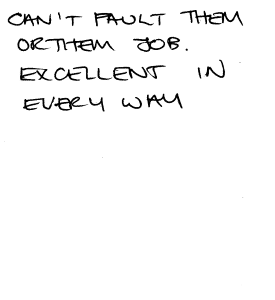 CAN'T FAULT THEM
OR THEM JOB.
EXCELLENT IN
EVERY WAY